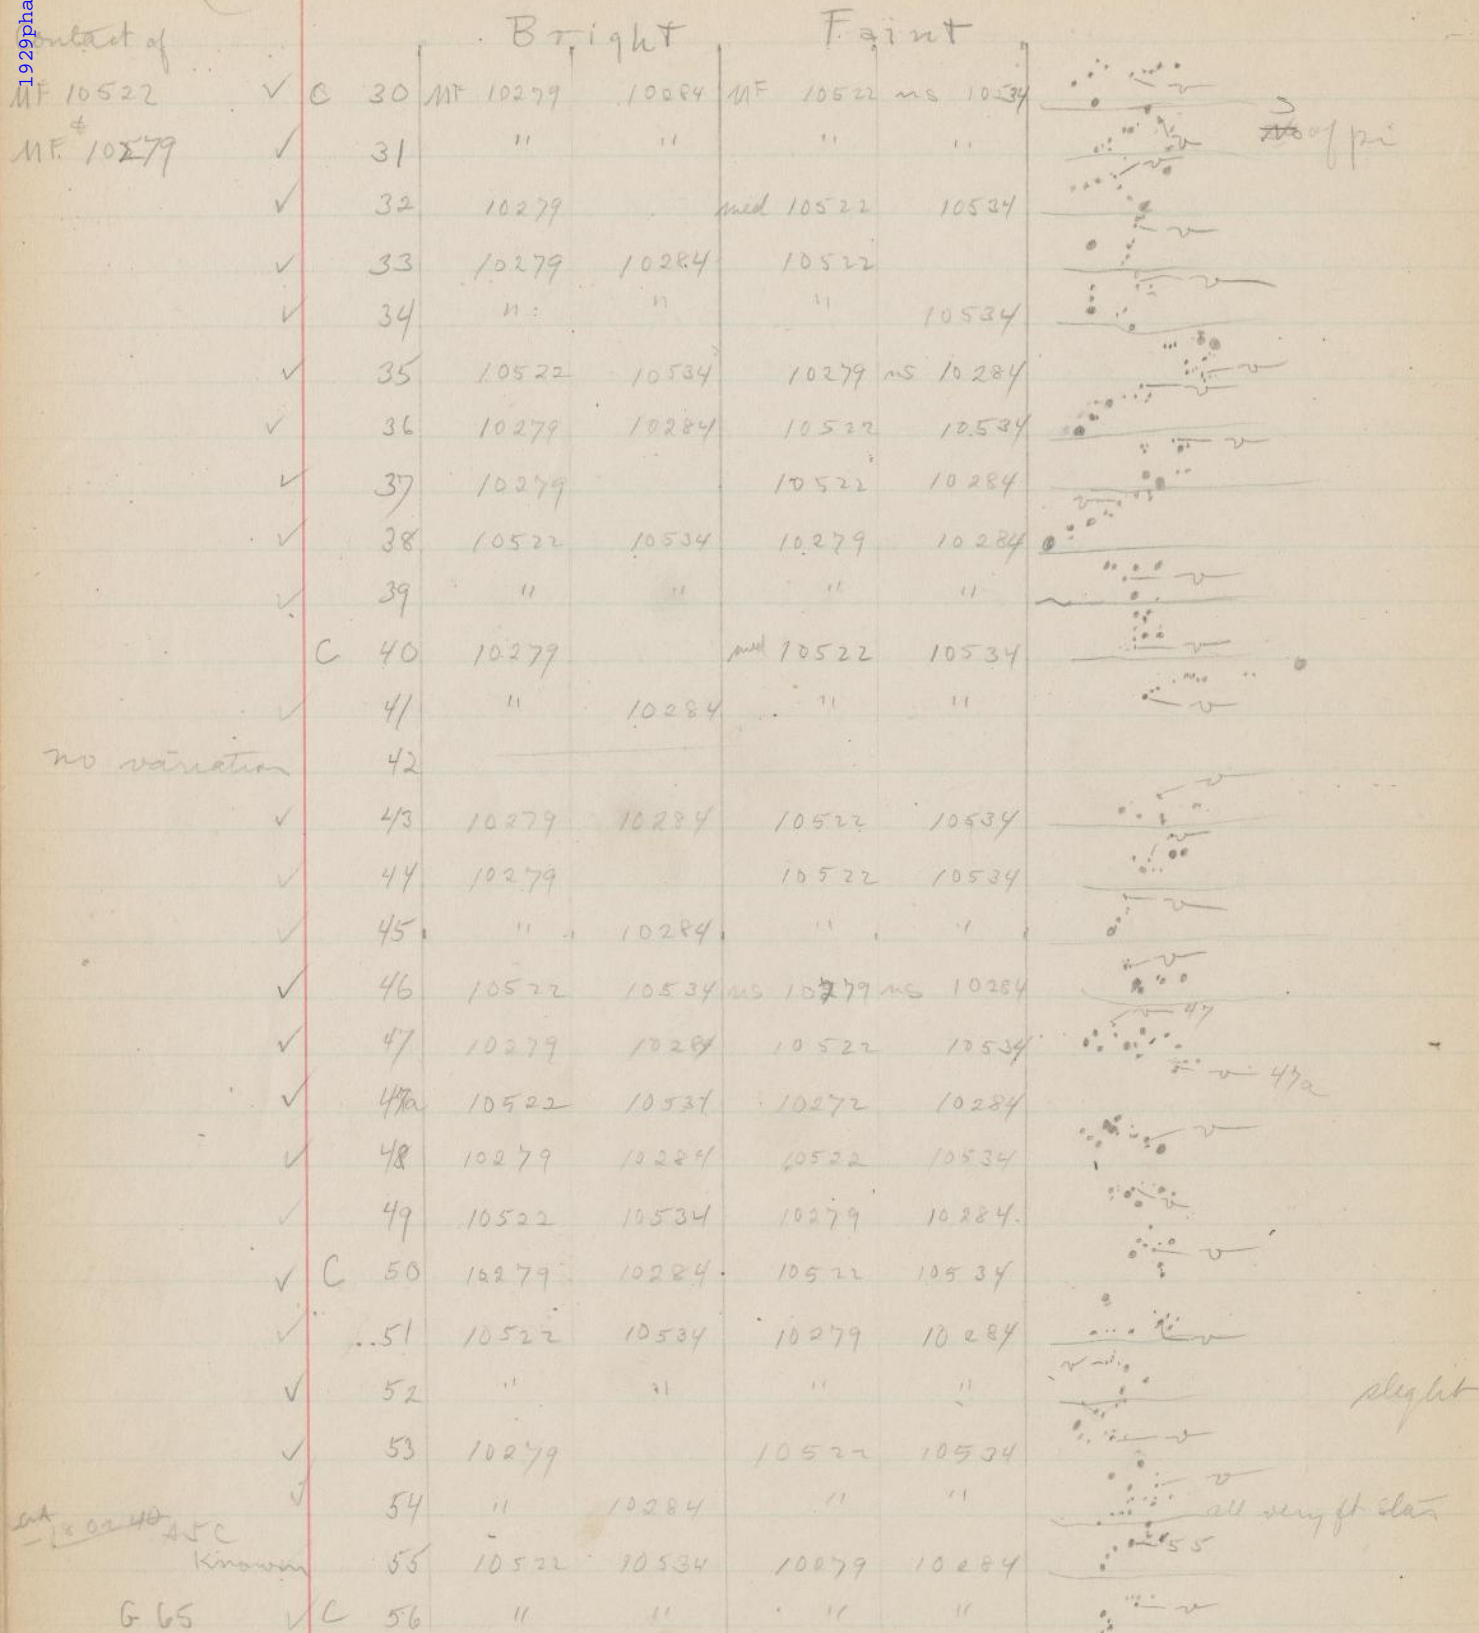 1929pha
Contact of Bright Faint
MF 10522 ✓ C 30 MF 10279 10284 MF 10522 ns 10534 v
& MF. 10279 ✓ 31 " " " " v of pi
✓ 32 10279 med 10522 10534 v
✓ 33 10279 10284 10522 v
✓ 34 " " " 10534 v
✓ 35 10522 10534 10279 ns 10284 v
✓ 36 10279 10284 10522 10534 v
✓ 37 10279 10522 10284 v
✓ 38 10522 10534 10279 10284 v
✓ 39 " " " " v
C 40 10279 med 10522 10534 v
✓ 41 " 10284 " " v
no variation 42
✓ 43 10279 10284 10522 10534 v
✓ 44 10279 10522 10534 v
✓ 45 " 10284 " " v
✓ 46 10522 10534 ns 10279 ns 10284 v
✓ 47 10279 10284 10522 10534 v 47
✓ 47a 10522 10534 10272 10284 v 47a
✓ 48 10279 10284 10522 10534 v
✓ 49 10522 10534 10279 10284 v
✓ C 50 10279 10284 10522 10534 v
✓ 51 10522 10534 10279 10284 v
✓ 52 " " " " v slight
✓ 53 10279 10522 10534 v
✓ 54 " 10284 " " v all very ft stars
A5C
Known 55 10522 10534 10279 10284 55
G 65 ✓ C 56 " " " " v